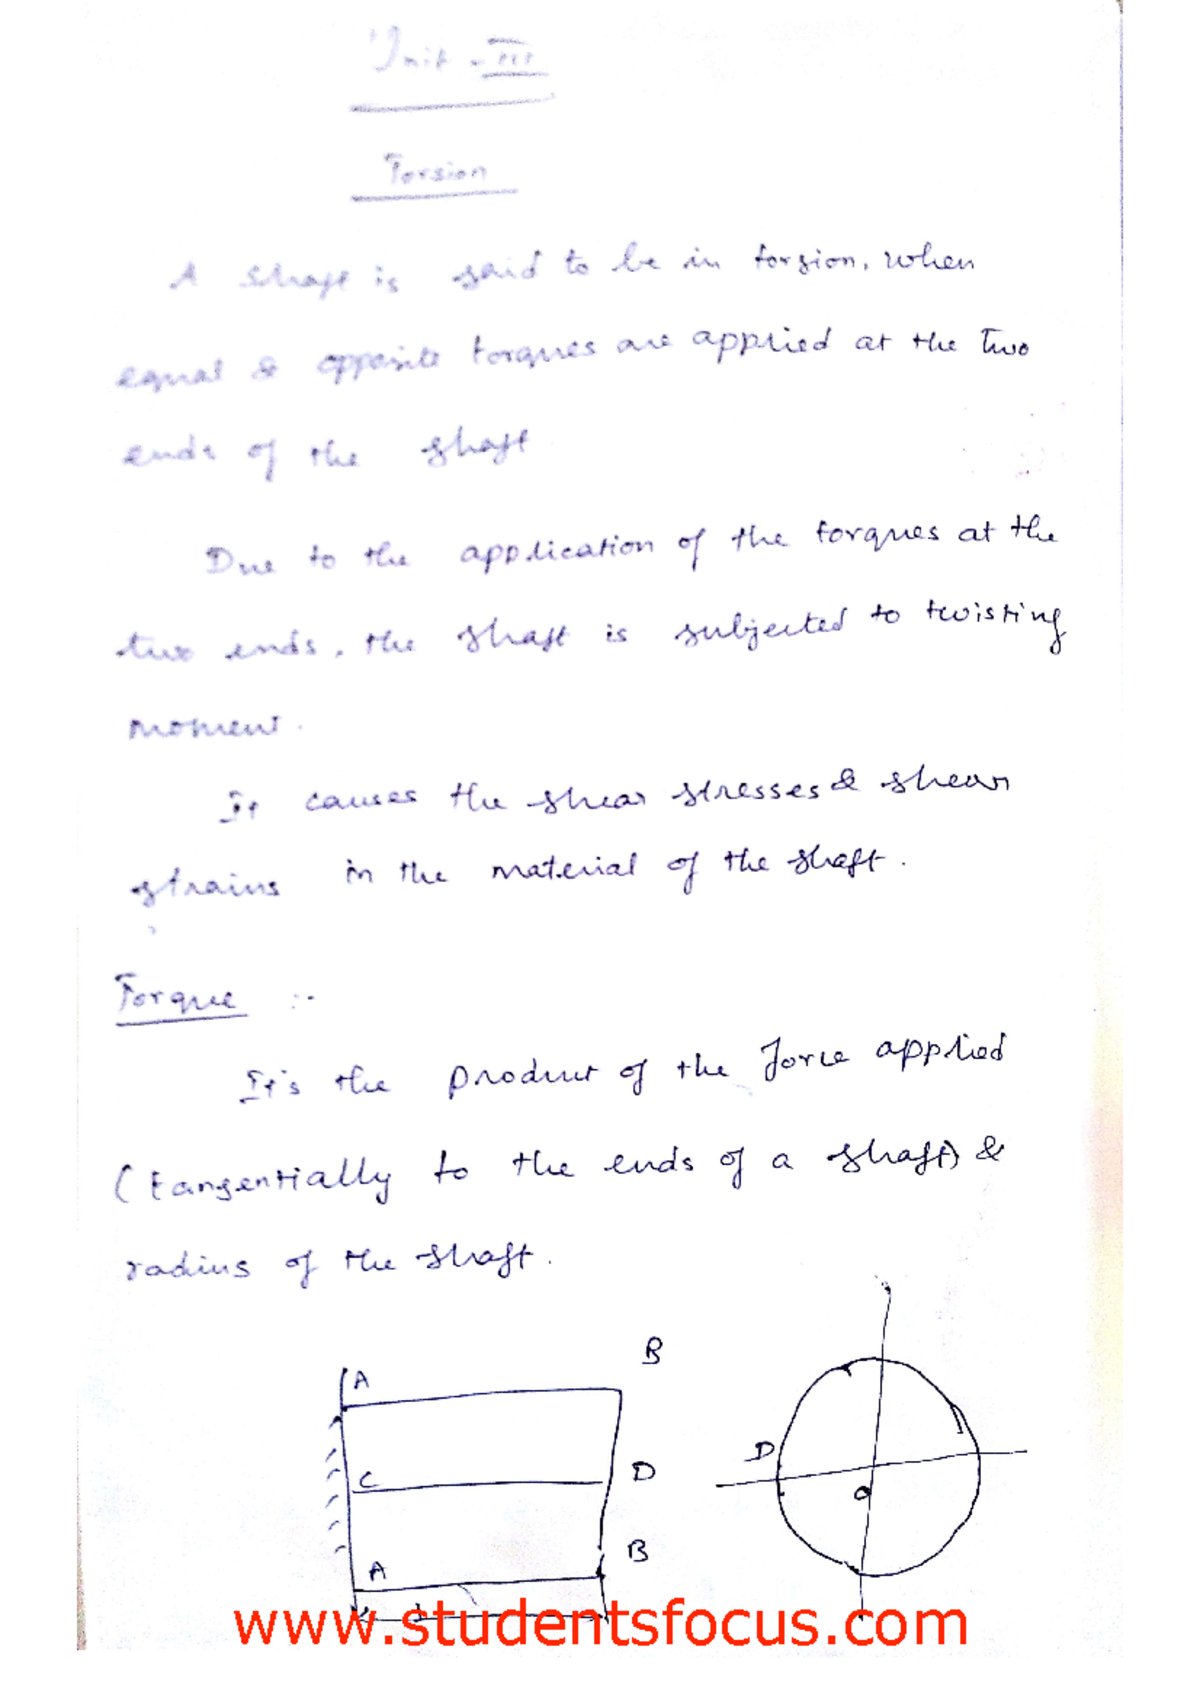 Unit - III
Torsion
A shaft is said to be in torsion, when
equal & opposite torques are applied at the two
ends of the shaft
Due to the application of the torques at the
two ends, the shaft is subjected to twisting
moment.
It causes the shear stresses & shear
strains in the material of the shaft.
Torque :-
It's the product of the force applied
(tangentially to the ends of a shaft) &
radius of the shaft.
A B
C D
A B
D O
www.studentsfocus.com